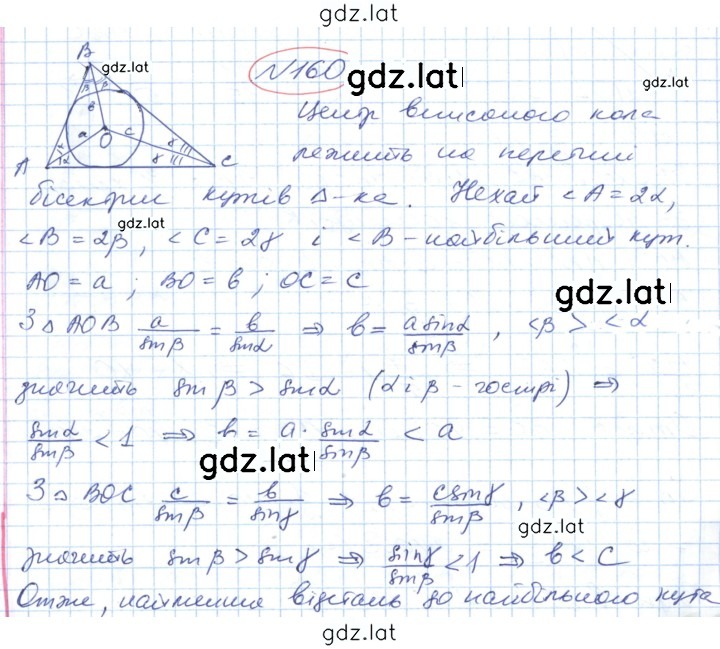 gdz.lat
B
gdz.lat
№160 gdz.lat
gdz.lat
β β
в
a
O
c
α
α
γ
γ
A
C
Центр вписаного кола
лежить на перетині
бісектрис кутів Δ-ка. Нехай <A = 2α,
gdz.lat
<B = 2β, <C = 2γ і <B – найбільший кут.
AO = a; BO = в; OC = c
gdz.lat
З Δ AOB a/sinβ = в/sinα ⇒ в = a sinα/sinβ, <β > <α
значить sinβ > sinα (α і β – гострі) ⇒
sinα/sinβ < 1 ⇒ в = a · sinα/sinβ < a
gdz.lat
З Δ BOC c/sinβ = в/sinγ ⇒ в = c sinγ/sinβ, <β > <γ
gdz.lat
значить sinβ > sinγ ⇒ sinγ/sinβ < 1 ⇒ в < c
Отже, найменша відстань до найбільшого кута
gdz.lat